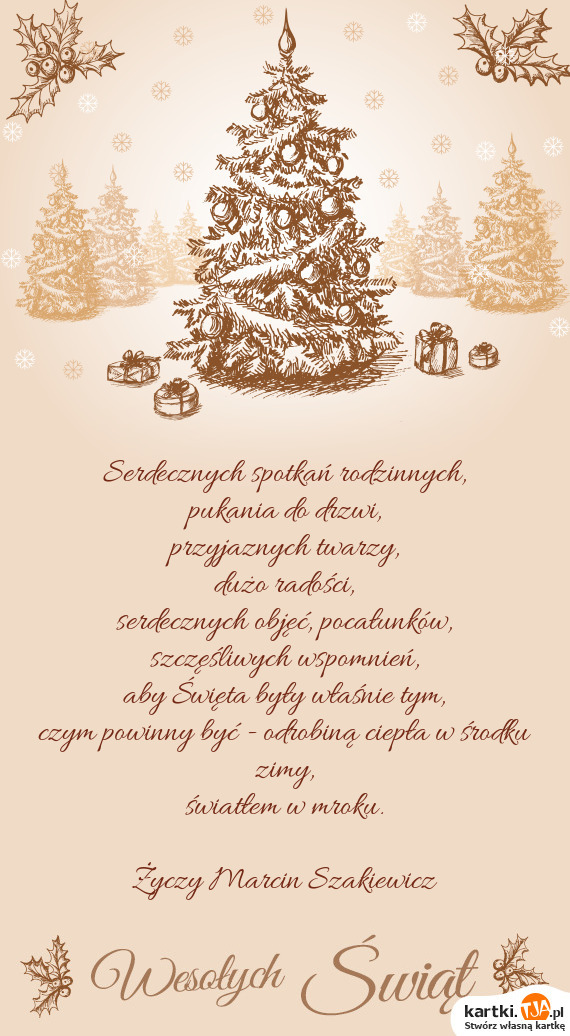 Serdecznych spotkań rodzinnych,
pukania do drzwi,
przyjaznych twarzy,
dużo radości,
serdecznych objęć, pocałunków,
szczęśliwych wspomnień,
aby Święta były właśnie tym,
czym powinny być - odrobiną ciepła w środku
zimy,
światłem w mroku.
Życzy Marcin Szakiewicz
Wesołych Świąt
kartki.TJA.pl
Stwórz własną kartkę